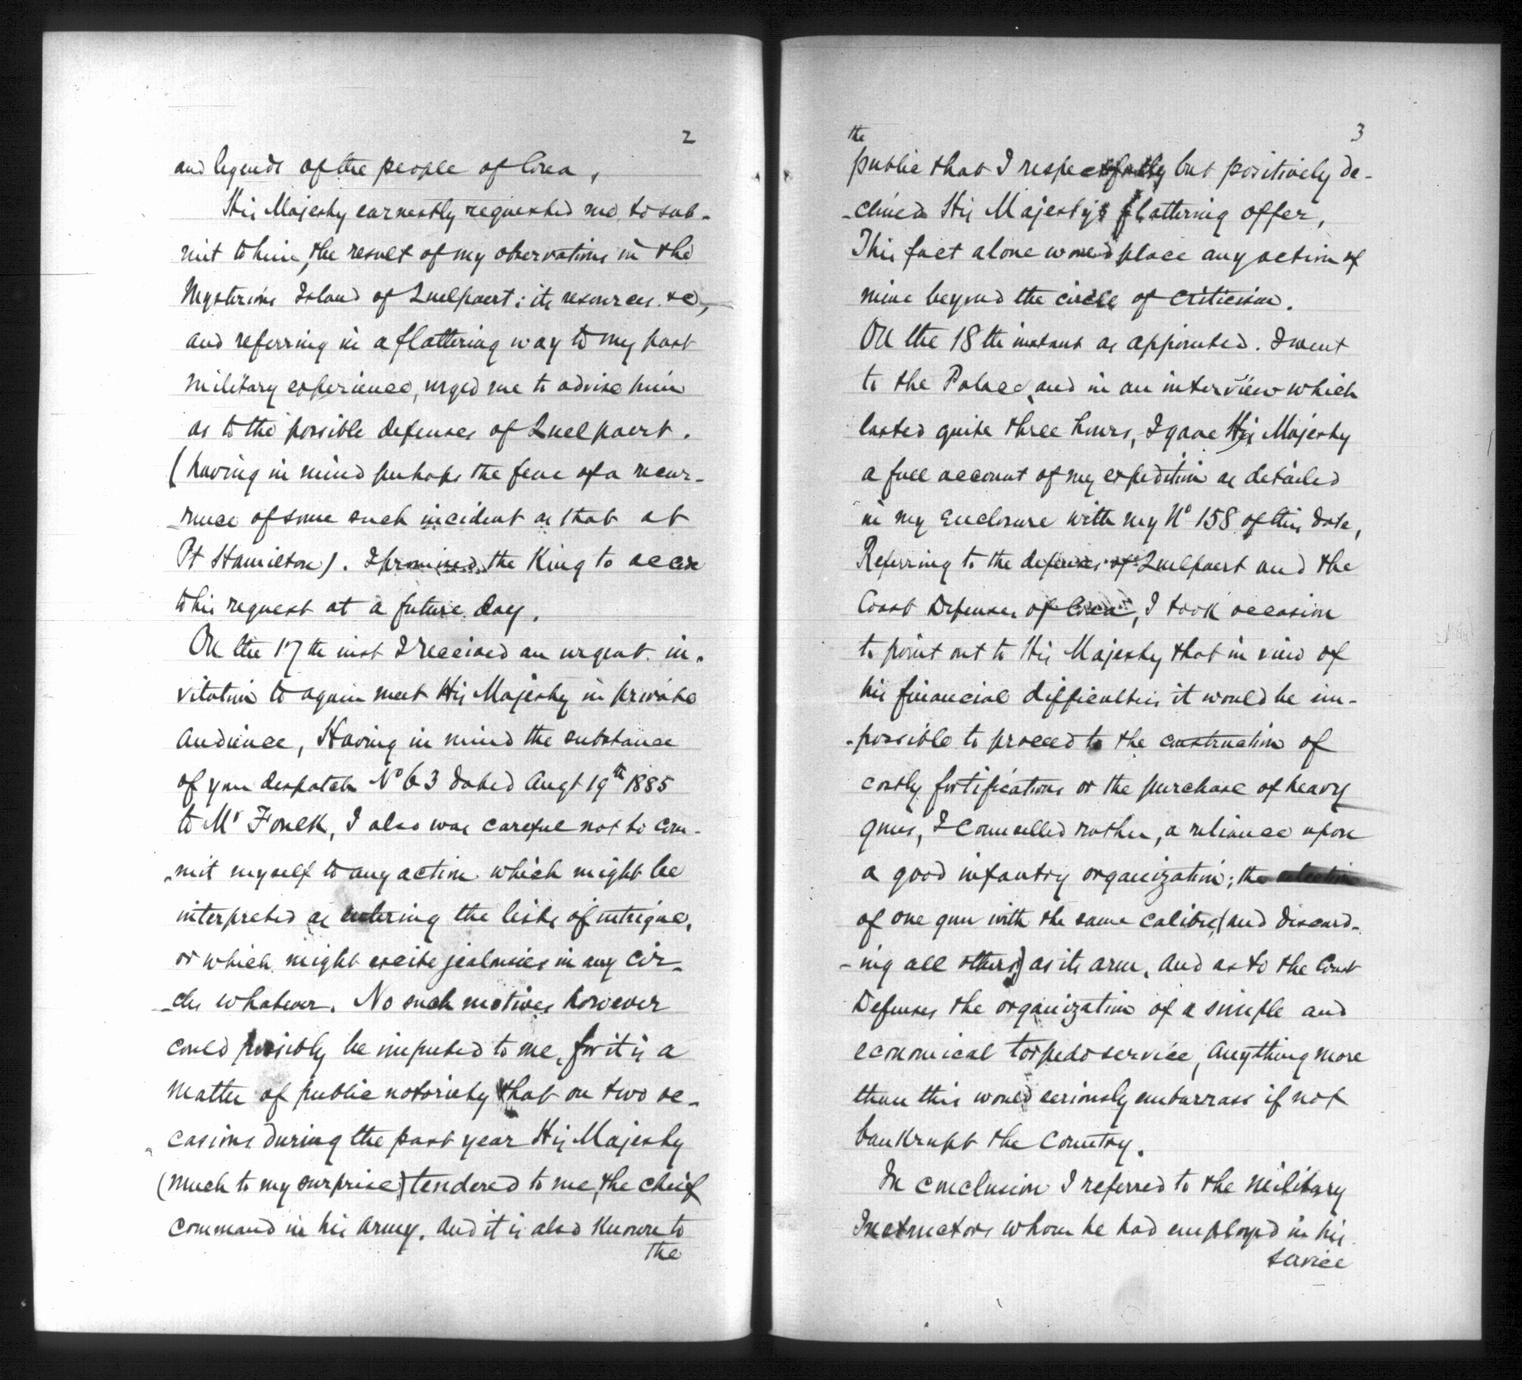 2
and legends of the people of Corea,
His Majesty earnestly requested me to sub-
mit to him, the result of my observations in the
Mysterious Island of Quelpaert; its resources &c,
and referring in a flattering way to my past
military experience, urged me to advise him
as to the possible defenses of Quelpaert.
(having in mind perhaps the fear of a recur-
-rence of some such incident as that at
Pt Hamilton). I promised the King to accede
to his request at a future day.
On the 17th inst I received an urgent in-
vitation to again meet His Majesty in private
audience, Having in mind the substance
of your despatch No 63 dated Augt 19th 1885
to Mr Foulk, I also was careful not to com-
-mit myself to any action which might be
interpreted as entering the lists of intrigue,
or which might excite jealousies in any cir-
-cles whatever. No such motives however
could possibly be imputed to me, for it is a
matter of public notoriety that on two oc-
casions during the past year His Majesty
(much to my surprise) tendered to me, the chief
command in his army. And it is also known to
the
3
the
public that I respectfully but positively de-
-clined His Majesty's flattering offer,
This fact alone would place any action of
mine beyond the circle of criticism.
On the 18th instant as appointed. I went
to the Palace, and in an interview which
lasted quite three hours, I gave His Majesty
a full account of my expedition as detailed
in my enclosure with my No 158 of this date,
Referring to the defenses of Quelpaert and the
Coast Defenses of Corea, I took occasion
to point out to His Majesty that in view of
his financial difficulties it would be im-
-possible to proceed to the construction of
costly fortifications or the purchase of heavy
guns, I counselled rather, a reliance upon
a good infantry organization; the selection
of one gun with the same calibre, (and discard-
-ing all others) as its arm. And as to the Coast
Defenses the organization of a simple and
economical torpedo service, Anything more
than this would seriously embarrass if not
bankrupt the Country.
In conclusion I referred to the Military
Instructors whom he had employed in his
service